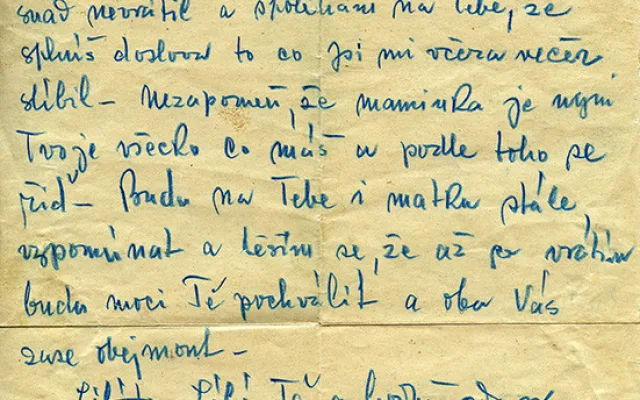 snad nevrátil a spoléhám na tebe, že
splníš doslova to co jsi mi včera večer
slíbil – Nezapomeň, že maminka je nyní
Tvoje všecko co máš a podle toho se
řiď – Budu na Tebe i matku stále
vzpomínat a těším se, že až se vrátím
budu moci Tě pochválit a oba Vás
zase obejmout –
Tě a